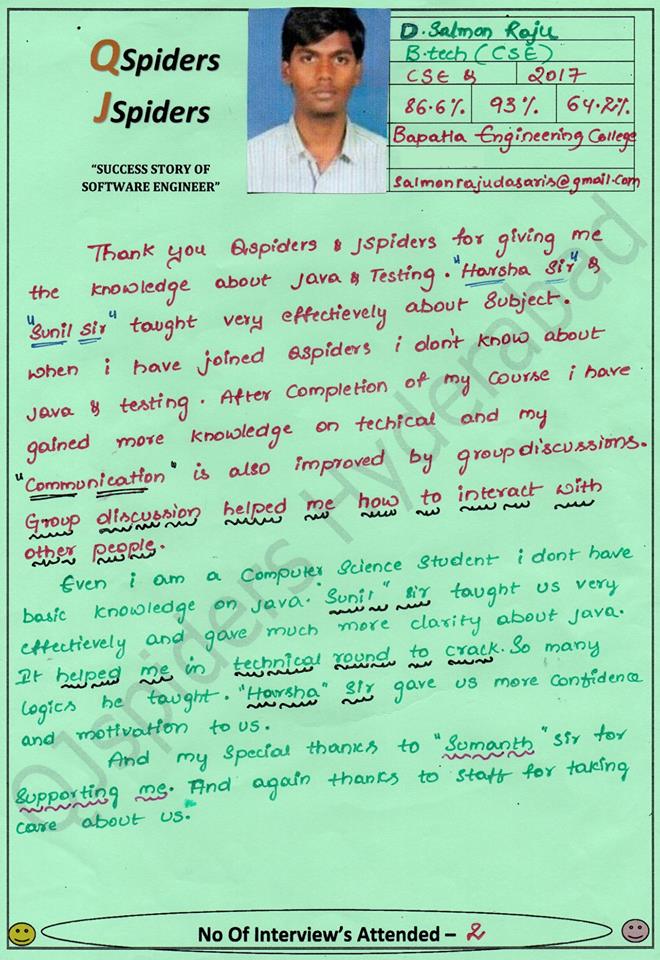 QSpiders
JSpiders
“SUCCESS STORY OF
SOFTWARE ENGINEER”
D. Salmon Raju
B.tech (CSE)
CSE & 2017
86.6% 93% 64.2%
Bapatla Engineering College
salmonrajudasaris@gmail.com
Thank you Qspiders & Jspiders for giving me
the knowledge about Java & Testing. "Harsha Sir" &
"Sunil Sir" taught very effectievely about Subject.
when i have joined Qspiders i don't know about
Java & testing. After Completion of my Course i have
gained more knowledge on techical and my
"Communication" is also improved by group discussions.
Group discussion helped me how to interact with
other people.
Even i am a Computer Science Student i dont have
basic knowledge on Java. "Sunil" sir taught us very
effectievely and gave much more clarity about Java.
It helped me in technical round to crack. So many
logics he taught. "Harsha" Sir gave us more confidence
and motivation to us.
And my special thanks to "Sumanth" sir for
Supporting me. And again thanks to staff for taking
care about us.
QJspiders Hyderabad
No Of Interview’s Attended – 2